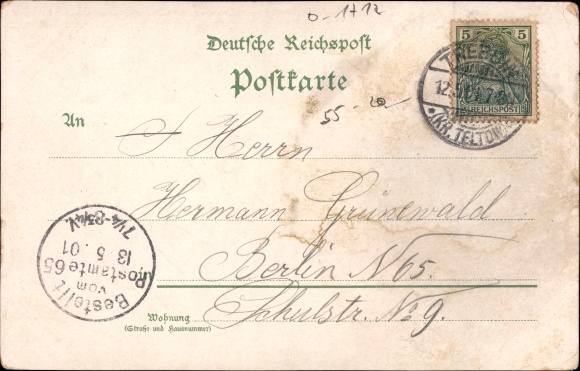 0-1712
Deutsche Reichspost
Postkarte
55-20
5 5
REICHSPOST
TREBBIN
12.5.01
*(KR. TELTOW)
An Herrn
Hermann Grünewald
Berlin N 65.
Wohnung Schulstr. No 9.
(Straße und Hausnummer)
Bestellt
vom
Postamte 65
13 5.01
7¼-8¾V.